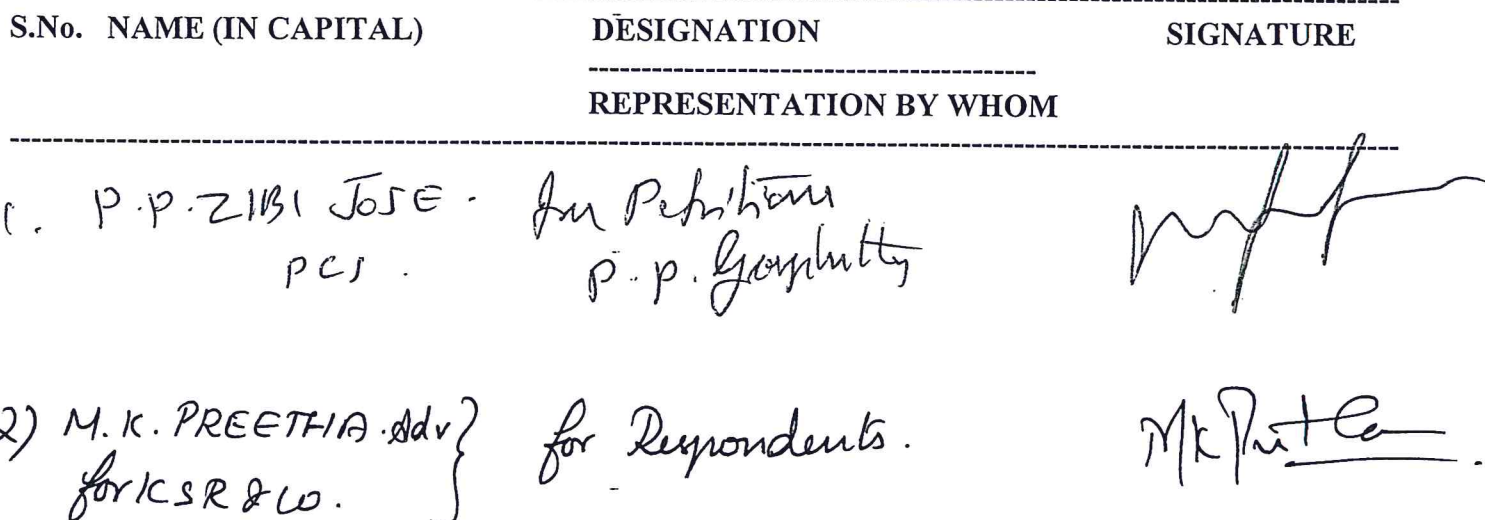 S.No. NAME (IN CAPITAL) DESIGNATION SIGNATURE
REPRESENTATION BY WHOM
1. P.P. ZIBI JOSE. For Petitioner
PCS. P.P.
2) M.K. PREETHA. Adv } for Respondents. MK
for KSR & Co.